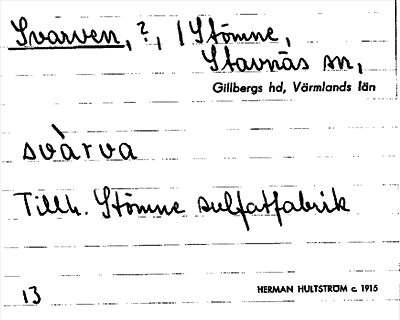 Svarven, ?, / Stömne,
Stavnäs sn,
Gillbergs hd, Värmlands län
svàrva
Tillh. Stömne sulfatfabrik
13
HERMAN HULTSTRÖM c. 1915